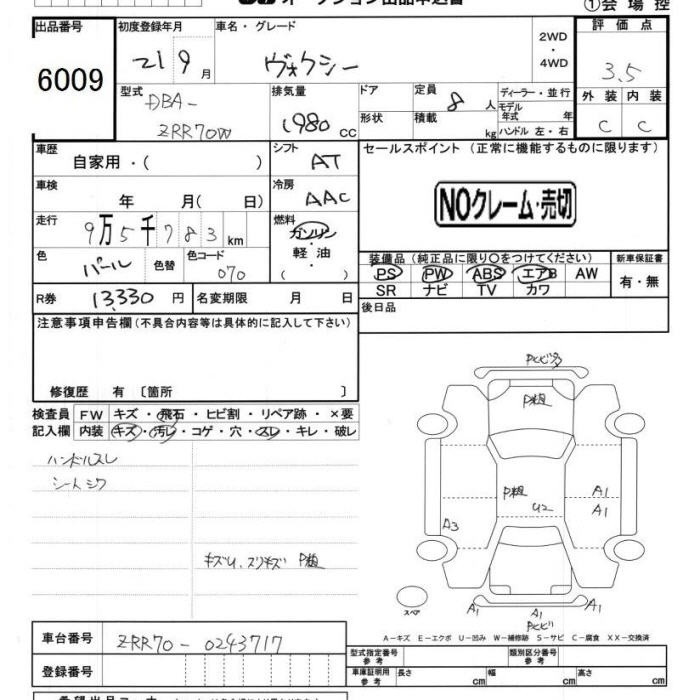 オークション出品申込書
①会場控
出品番号 初度登録年月 車名・グレード 2WD・4WD 評価点
6009 21 9月 ヴォクシー 3.5
型式 DBA-ZRR70W 排気量 1980 cc ドア 定員 8 人 ディーラー・並行 外装 内装
形状 積載 kg モデル年式 年 ハンドル 左・右 C C
車歴 自家用・( ) シフト AT セールスポイント (正常に機能するものに限ります)
車検 年 月(日) 冷房 AAC NOクレーム・売切
走行 9万5千783km 燃料 ガソリン・軽油・( )
色 パール 色替 色コード 070 装備品(純正品に限り○をつけてください) 新車保証書
PS PW ABS エアB AW 有・無
SR ナビ TV カワ
R券 13,330円 名変期限 月 日 後日品
注意事項申告欄(不具合内容等は具体的に記入して下さい)
修復歴 有 〔箇所 〕
検査員 FW キズ・飛石・ヒビ割・リペア跡・×要
記入欄 内装 キズ・汚レ・コゲ・穴・スレ・キレ・破レ
ハンドルスレ
シートシワ
キズU、スリキズ P粗
P粗
P粗
U2
A1
A1
A3
A1
A1
Pヒビ
スペア
A-キズ E-エクボ U-凹み W-補修跡 S-サビ C-腐食 XX-交換済
車台番号 ZRR70-0243717 型式指定番号 参考 類別区分番号 参考
登録番号 車庫証明用 参考 長さ cm 幅 cm 高さ cm